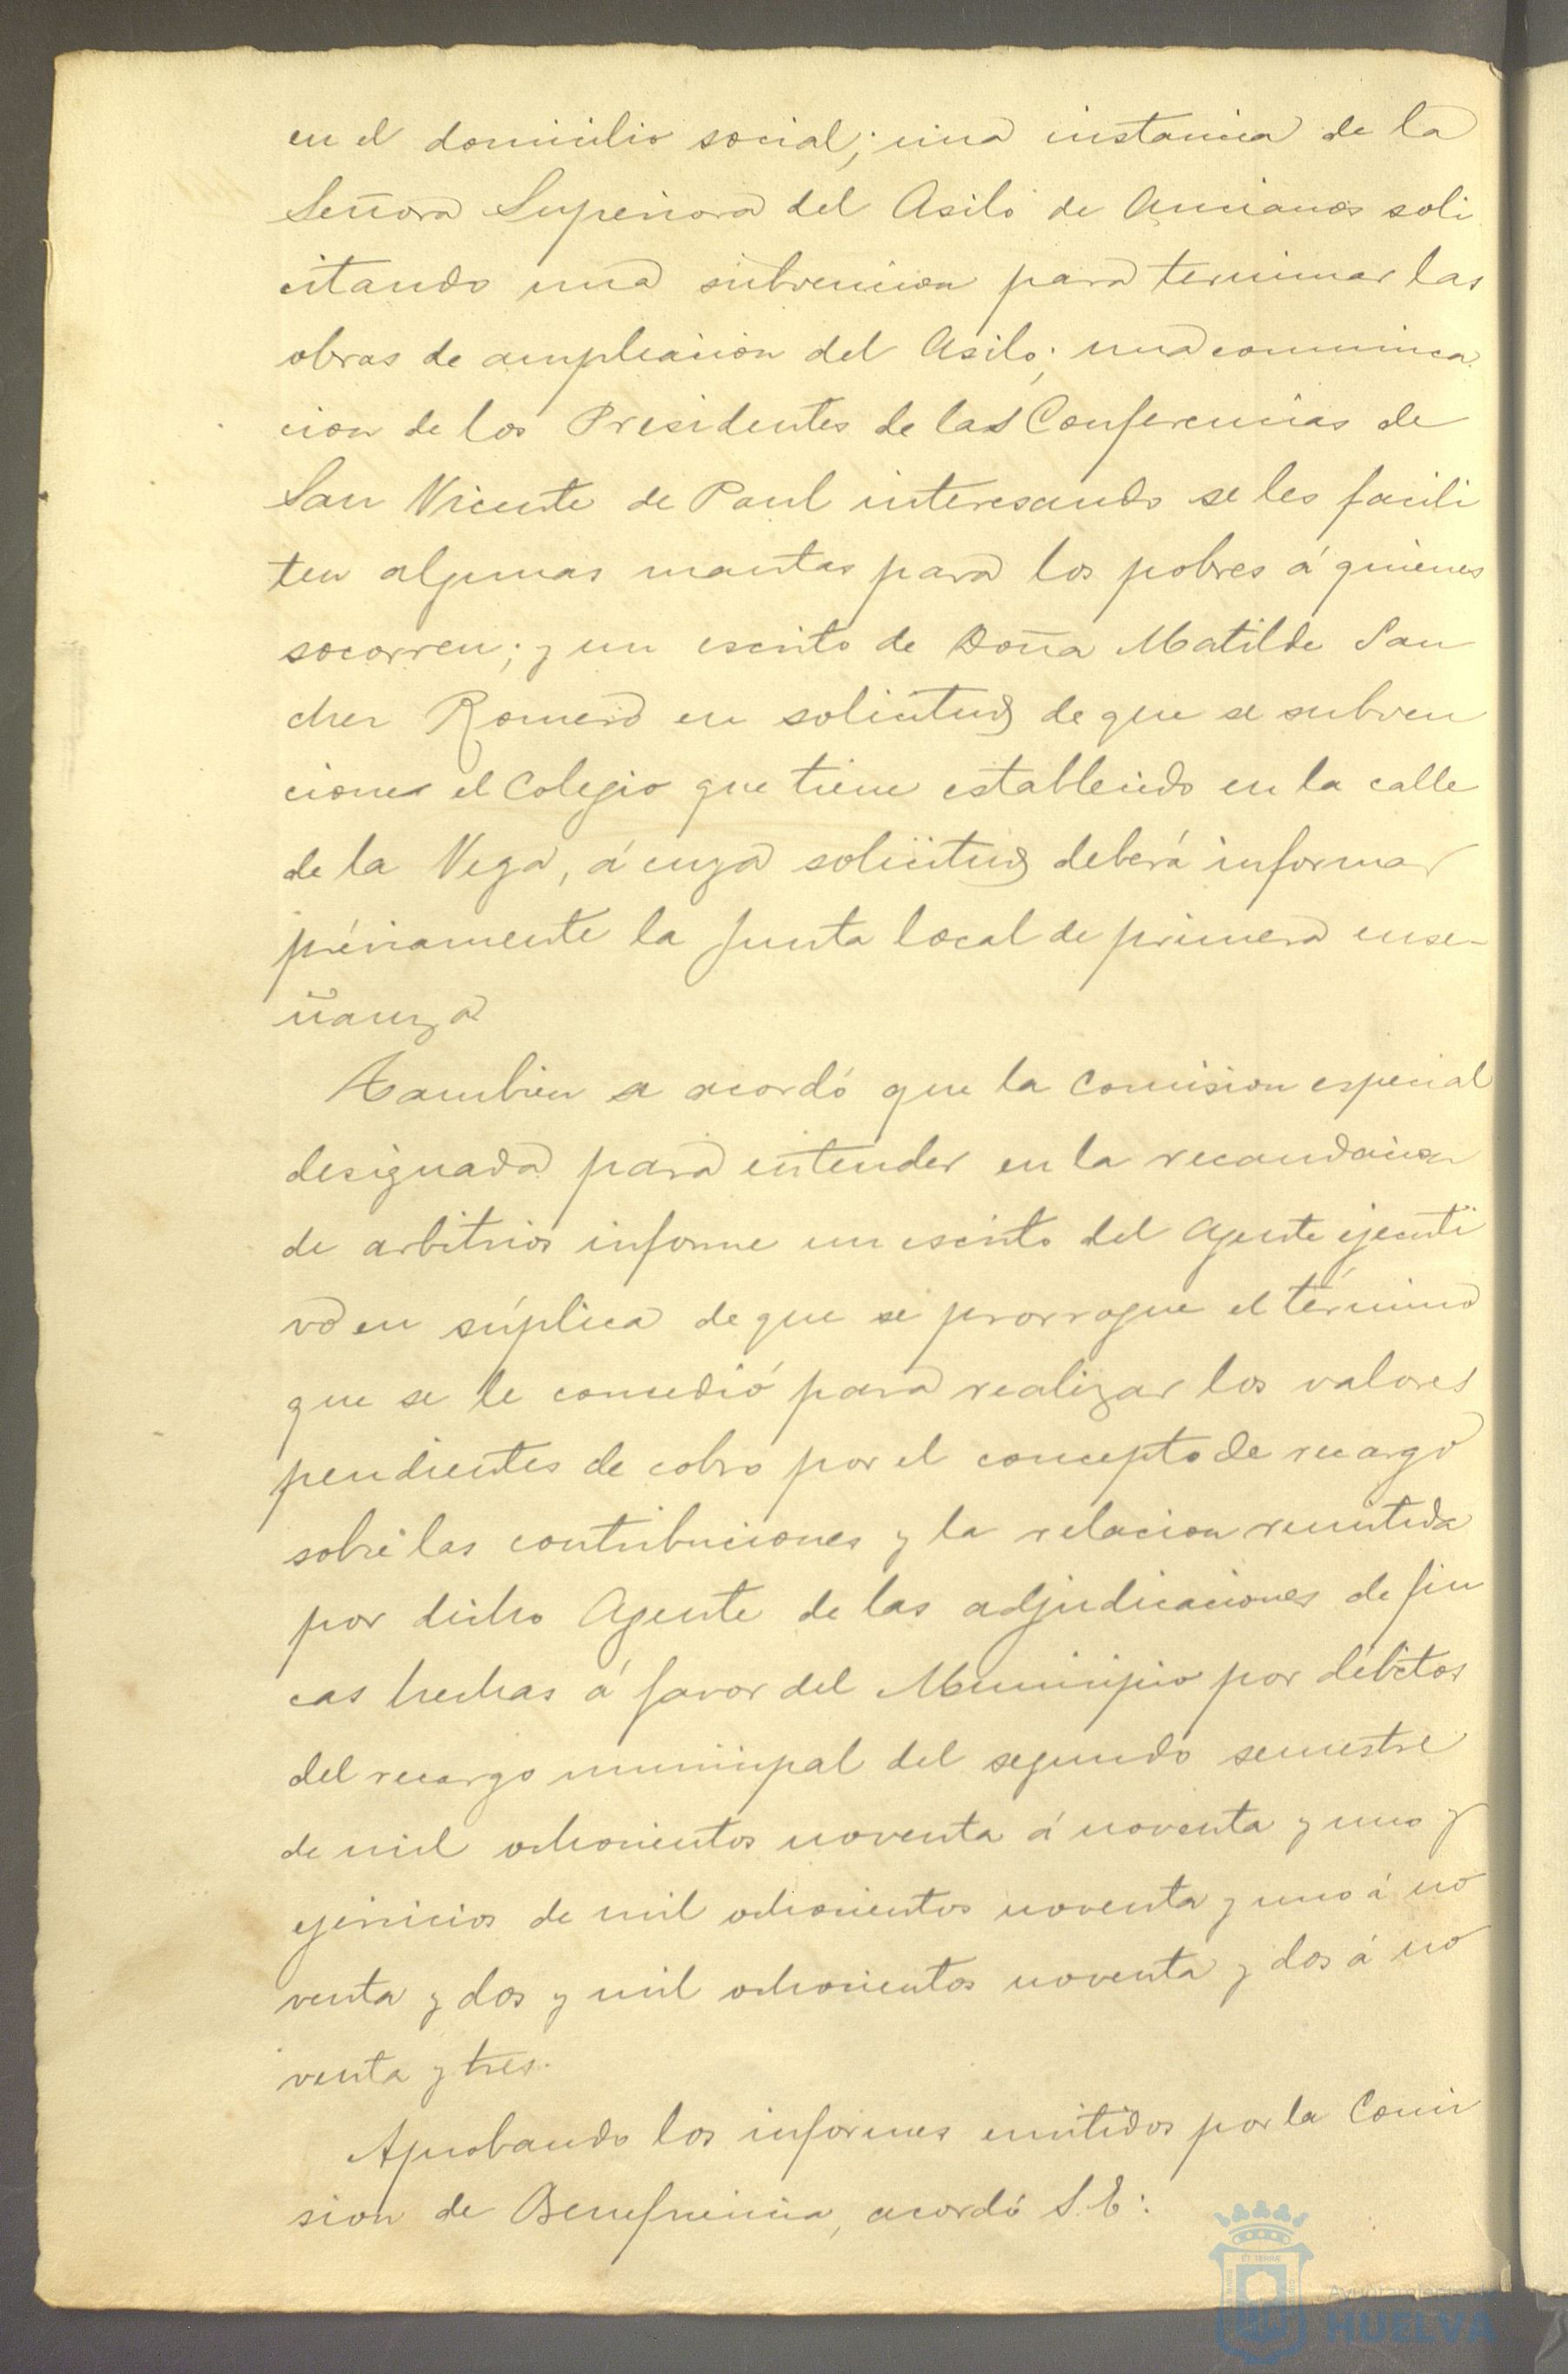 en el domicilio social; una instancia de la
Señora Superiora del Asilo de Ancianos soli
citando una subvencion para terminar las
obras de ampliacion del Asilo; una comunica
cion de los Presidentes de las Conferencias de
San Vicente de Paul interesando se les facili
ten algunas mantas para los pobres á quienes
socorren; y un escrito de Doña Matilde San
chez Romero en solicitud de que se subven
cione el Colegio que tiene establecido en la calle
de la Vega, á cuya solicitud deberá informar
préviamente la Junta local de primera ense-
ñanza
Tambien se acordó que la Comision especial
designada para entender en la recaudacion
de arbitrios informe un escrito del Agente ejecuti
vo en súplica de que se prorrogue el término
que se le concedió para realizar los valores
pendientes de cobro por el concepto de recargo
sobre las contribuciones y la relacion remitida
por dicho Agente de las adjudicaciones de fin
cas hechas á favor del Municipio por débitos
del recargo municipal del segundo semestre
de mil ochocientos noventa á noventa y uno y
ejercicios de mil ochocientos noventa y uno á no
venta y dos y mil ochocientos noventa y dos á no
venta y tres.
Aprobando los informes emitidos por la Comi
sion de Beneficencia, acordó S. E:
Ayuntamiento de
HUELVA